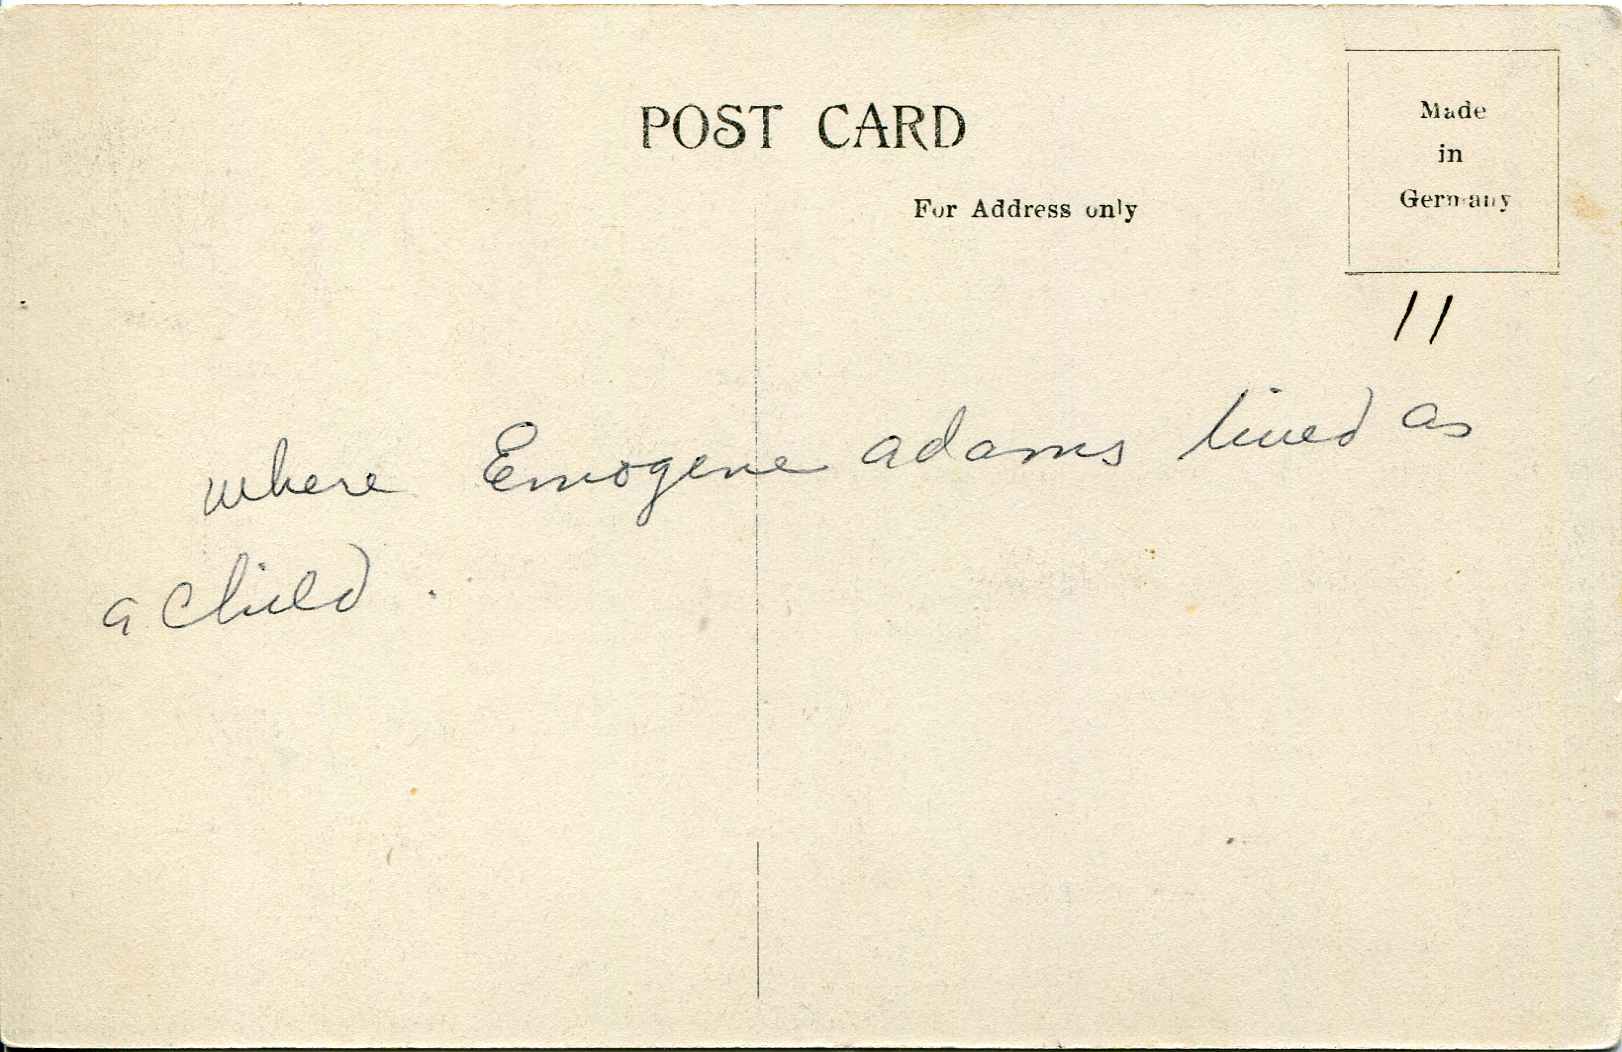 POST CARD
For Address only
Made
in
Germany
11
where Emogene adams lived as
a child.